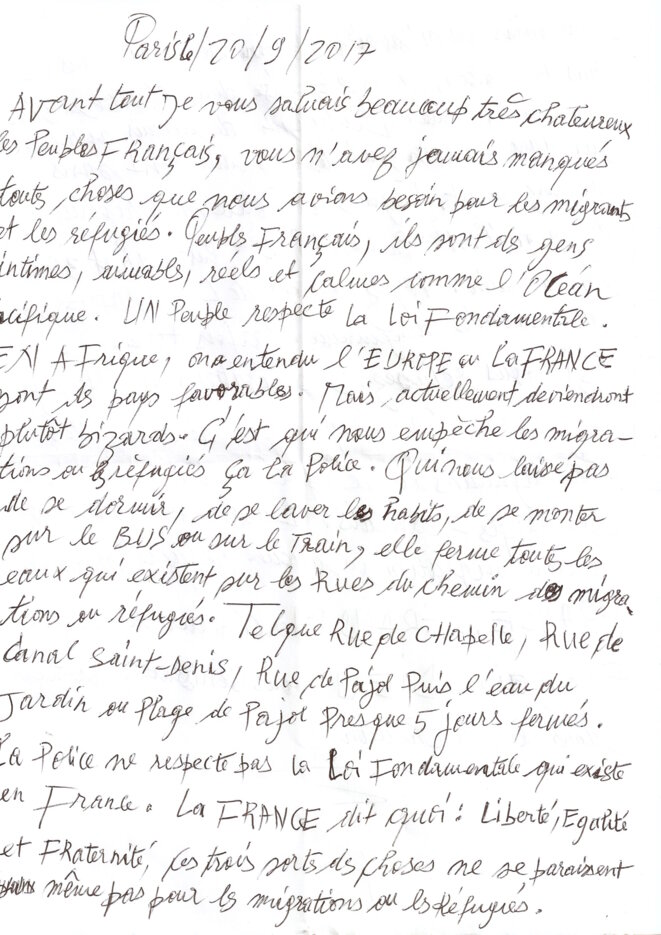 Paris le/20/9/2017
Avant tout Je vous saluais beaucoup très chateureux
les Peuples Français, vous n'avez jamais manqués
toutes choses que nous avions besoin pour les migrants
et les réfugiés. Peuple Français, ils sont ds gens
intimes, aimables, réels et calmes comme l'Océan
acifique. UN Peuple respecte la Loi Fondamentale.
EN AFrique, on a entendu l'EUROPE ou La FRANCE
sont ls pays favorables. Mais, actuellement deviendront
plutôt bizards. C'est qui nous empêche les migra-
tions ou réfugiés ça La Police. Qui nous laisse pas
de se dormir, de se laver les habits, de se monter
sur le BUS ou sur le Train, elle ferme toutes les
eaux qui existent sur les Rues du chemin des migra
tions ou réfugiés. Telque Rue de CHapelle, Rue de
Canal Saint-Denis, Rue de Pajol Puis l'eau du
Jardin ou Plage de Pajol Presque 5 jours fermés.
La Police ne respecte pas la Loi Fondamentale qui existe
en France. La FRANCE dit quoi: Liberté, Egalité
et FRaternité, ces trois sorts ds choses ne se paraissent
même pas pour ls migrations ou ls Réfugiés.